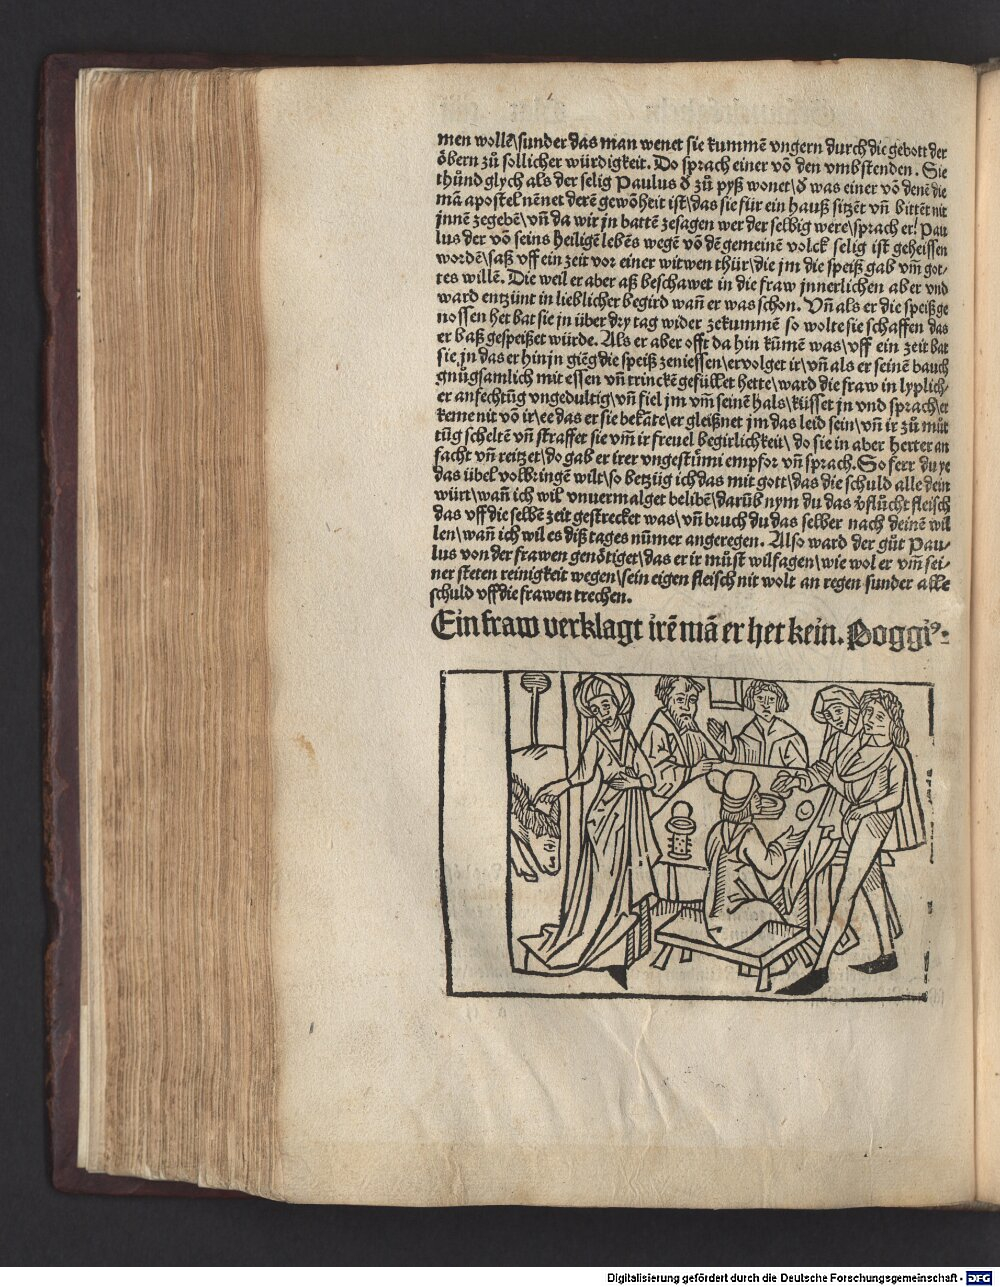 men wollē\sunder das man wenet sie kummē vngern durch die gebott der
öbern zů sollicher würdigkeit. Do sprach einer vō den vmbstenden. Sie
thůnd glych als der selig Paulus d̄ zů pyß wonet\d̄ was einer vō denē die
mā apostel nēnet derē gewōheit ist\das sie für ein hauß sitzēt vn̄ bittēt nit
jnnē zegebē\vn̄ da wir jn battē zesagen wer der selbig were\sprach er! Pau
lus der vō seins heiligē lebēs wegē vō dē gemeinē volck selig ist geheissen
wordē\saß vff ein zeit vor einer witwen thür\die jm die speiß gab vm̄ got⸗
tes willē. Die weil er aber aß beschawet in die fraw jnnerlichen aber vnd
ward entzünt in lieblicher begird wan̄ er was schon. Vn̄ als er die speiß ge
nossen het bat sie jn über dry tag wider zekummē so wolte sie schaffen das
er baß gespeißet würde. Als er aber offt da hin kūmē was\vff ein zeit bat
sie jn das er hin jn giēg die speiß zeniessen\ervolget ir\vn̄ als er seinē bauch
gnůgsamlich mit essen vn̄ trinckē gefüllet hette\ward die fraw in lyplich⸗
er anfechtūg vngedultig\vn̄ fiel jm vm̄ seinē hals\küsset jn vnd sprach\er
keme nit vō ir\ee das er sie bekāte\er gleißnet jm das leid sein\vn̄ ir zů můt
tūg scheltē vn̄ straffet sie vm̄ ir freuel begirlichkeit\ do sie in aber herter an
facht vn̄ reitzet\do gab er irer vngestümi empfor vn̄ sprach. So ferr du ye
das übel volbringē wilt\so betzüg ich das mit gott\das die schuld alle dein
würt\wan̄ ich wil vnuermalget belibē\darūb nym du das v̄flůcht fleisch
das vff die selbē zeit gestrecket was\vn̄ bruch du das selber nach deinē wil
len\wan̄ ich wil es diß tages nūmer angeregen. Also ward der gůt Pau⸗
lus von der frawen genötiget\das er ir můst wilfagen\wie wol er vm̄ sei⸗
ner steten reinigkeit wegen\sein eigen fleisch nit wolt an regen sunder alle
schuld vff die frawen trechen.
Ein fraw verklagt irē mā er het kein. Poggi⁹:
Digitalisierung gefördert durch die Deutsche Forschungsgemeinschaft - DFG